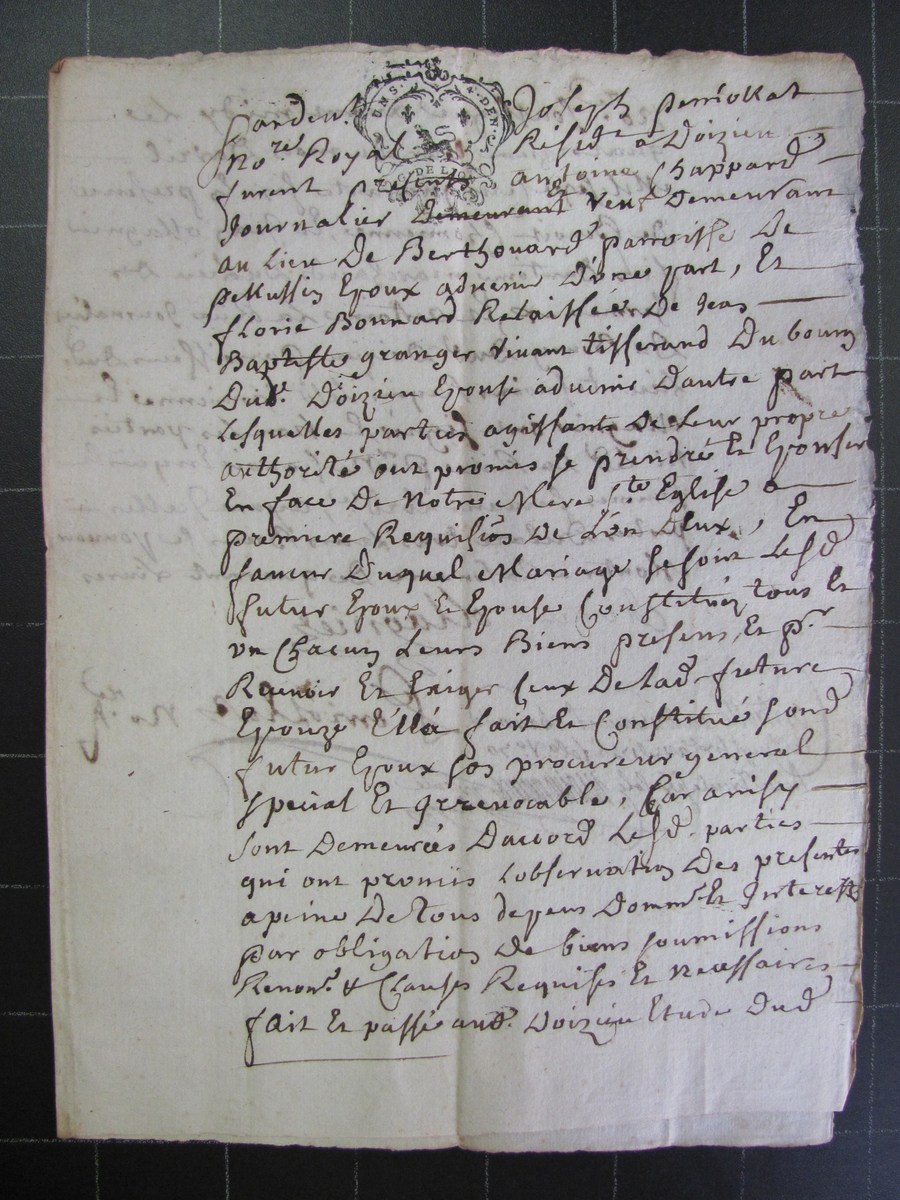 Pardevt Joseph perriollat
UN S. 4. DEN.
Nore Royal Reside a Doizieu
G. DE LION
furent presents antoine Chappard
Journalier Demeurant veuf Demeurant
au Lieu De Berthouard parroisse De
pellussin Epoux advenir D'une part, Et
florie Bonnard Relaissée De Jean
Baptiste granger vivant tisserand Du bourg
Dud. Doizieu Epouse advenir Dautre part
Lesquelles parties agissants De Leur propre
authorité ont promis se prendre Et Epouser
En face De Notre Mere Ste Eglise a
premiere Requision De L'un D'Eux, En
faveur Duquel Mariage se sont Lesd
futur Epoux Et Epouse Constitués tous Et
un Chacun Leurs Biens presens, Et pr
Recevoir Et Exiger Ceux De lad future
Epouze Ella fait Et Constitué sond
futur Epoux son procureur general
special Et Irrevocable, Car ainsy
sont Demeurées Daccord Lesd. parties
qui ont promis Lobservation Des presentes
a peine De tous depens Domm. Et Interests
par obligation De biens soumissions
Renon. & Clauses Requises Et Necessaires
fait Et passé aud. Doizieu Etude Dud